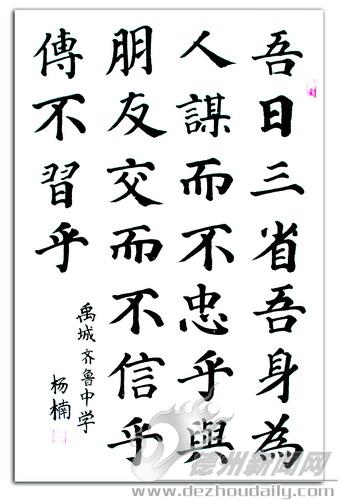 吾日三省吾身為
人謀而不忠乎與
朋友交而不信乎
傳不習乎
禹城齐鲁中学
杨楠
德州新闻网
www.dezhoudaily.com